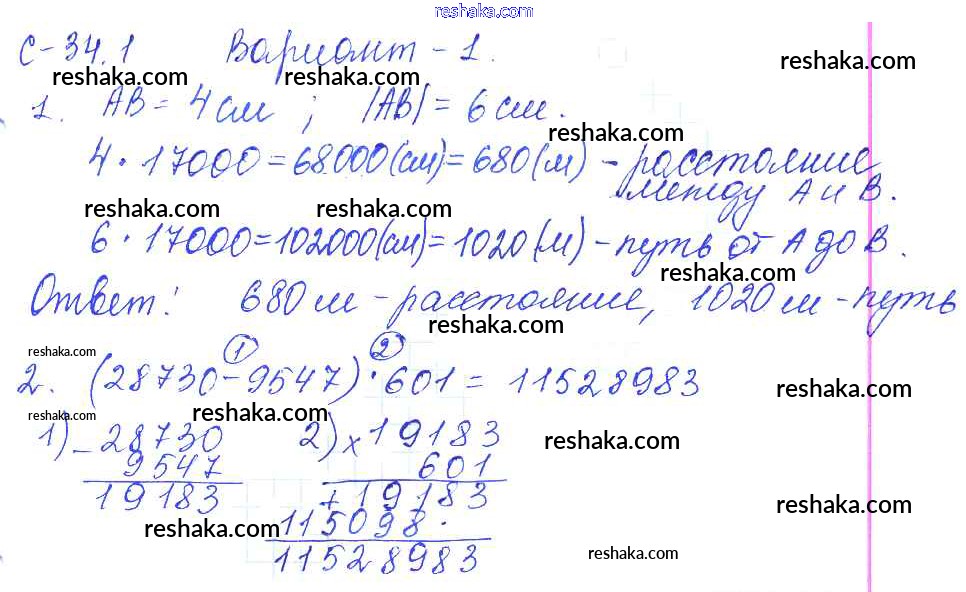 reshaka.com
С-34.1 Вариант - 1.
reshaka.com reshaka.com reshaka.com
1. AB = 4 см ; |AB| = 6 см.
reshaka.com
4 · 17000 = 68000 (см) = 680 (м) - расстояние
между А и В.
reshaka.com reshaka.com
6 · 17000 = 102000 (см) = 1020 (м) - путь от А до В.
reshaka.com
Ответ: 680 м - расстояние, 1020 м - путь
reshaka.com
reshaka.com 1 2
2. (28730 - 9547) · 601 = 11528983
reshaka.com
reshaka.com reshaka.com
1) - 28730 2) × 19183
reshaka.com
9547 601
19183 + 19183
reshaka.com
reshaka.com 115098 ·
11528983
reshaka.com